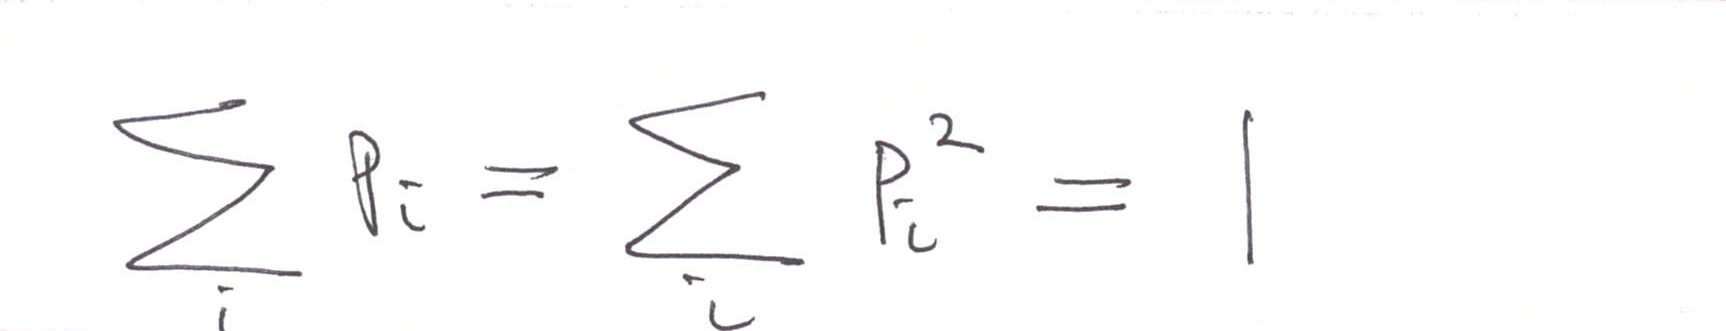 ∑_i P_i = ∑_i P_i^2 = 1